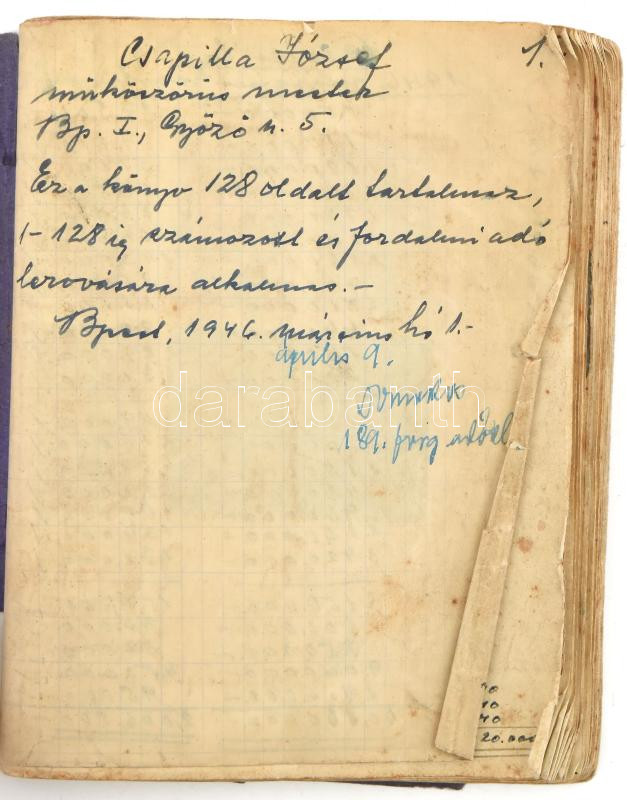 Csapilla József 1.
műköszörűs mester
Bp. I., Győző u. 5.
Ez a könyv 128 oldalt tartalmaz,
1-128 ig számozott és fordalmi adó
lerovására alkalmas.-
Bpest, 1946. március hó 1.-
április 9.
189.
darabanth
20.000